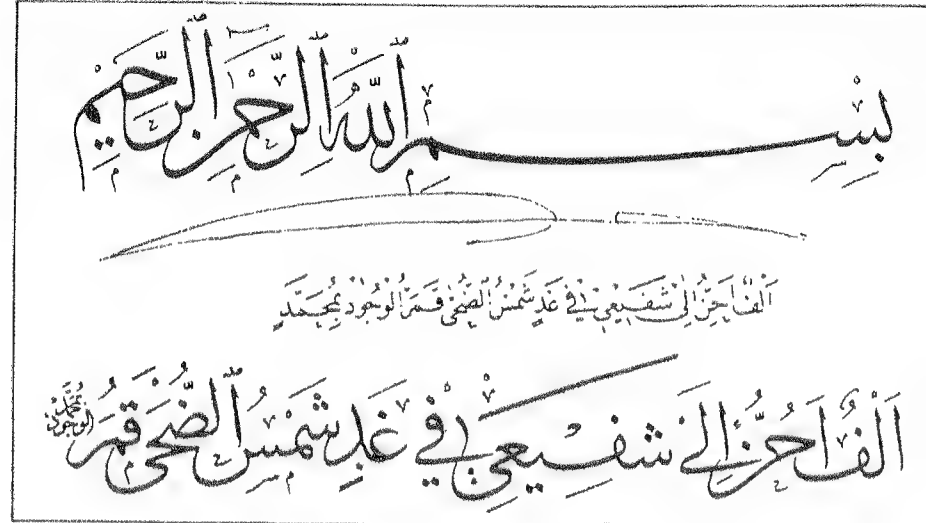 بِسْمِ اللَّهِ الرَّحْمٰنِ الرَّحِيمِ
أَلْفٌ أَحِنُّ إِلَى شَفِيعِي فِي غَدٍ شَمْسُ الضُّحَى قَمَرُ الْوُجُودِ مُحَمَّدٍ
أَلْفٌ أَحُنُّ إِلَى شَفِيعِي فِي غَدٍ شَمْسُ الضُّحَى قَمَرُ الْوُجُودِ مُحَمَّدٌ